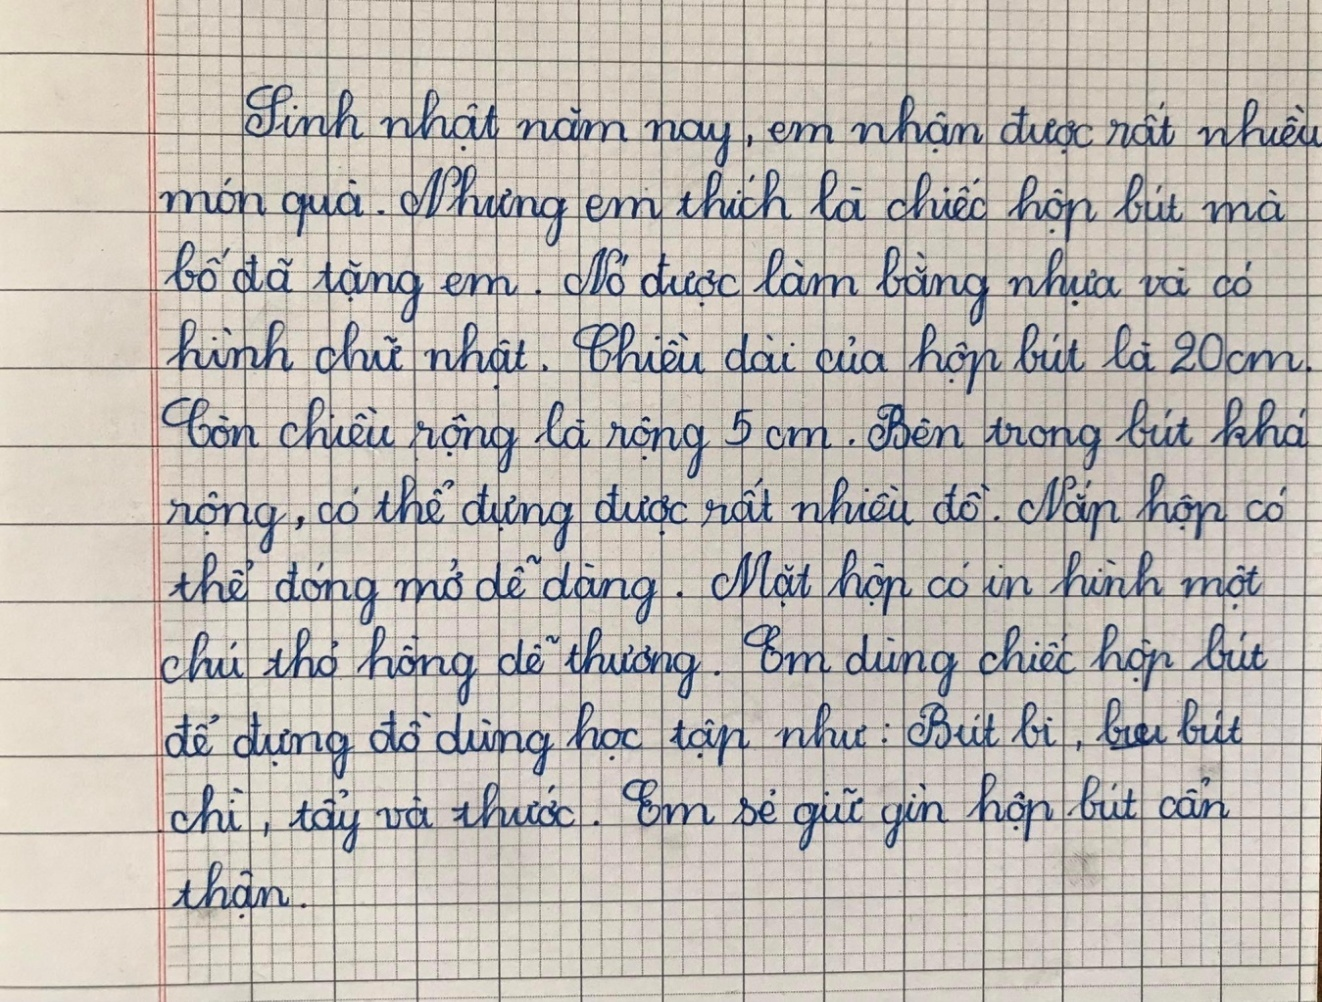 Sinh nhật năm nay, em nhận được rất nhiều
món quà. Nhưng em thích là chiếc hộp bút mà
bố đã tặng em. Nó được làm bằng nhựa và có
hình chữ nhật. Chiều dài của hộp bút là 20cm.
Còn chiều rộng là rộng 5 cm. Bên trong bút khá
rộng, có thể đựng được rất nhiều đồ. Nắp hộp có
thể đóng mở dễ dàng. Mặt hộp có in hình một
chú thỏ hồng dễ thương. Em dùng chiếc hộp bút
để đựng đồ dùng học tập như: Bút bi, bút
chì, tẩy và thước. Em sẽ giữ gìn hộp bút cẩn
thận.